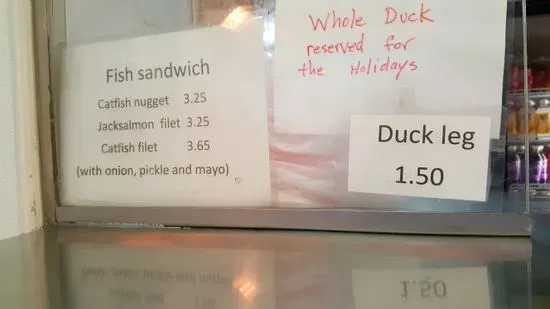 Fish sandwich
Catfish nugget 3.25
Jacksalmon filet 3.25
Catfish filet 3.65
(with onion, pickle and mayo)
Whole Duck
reserved for
the Holidays
Duck leg
1.50